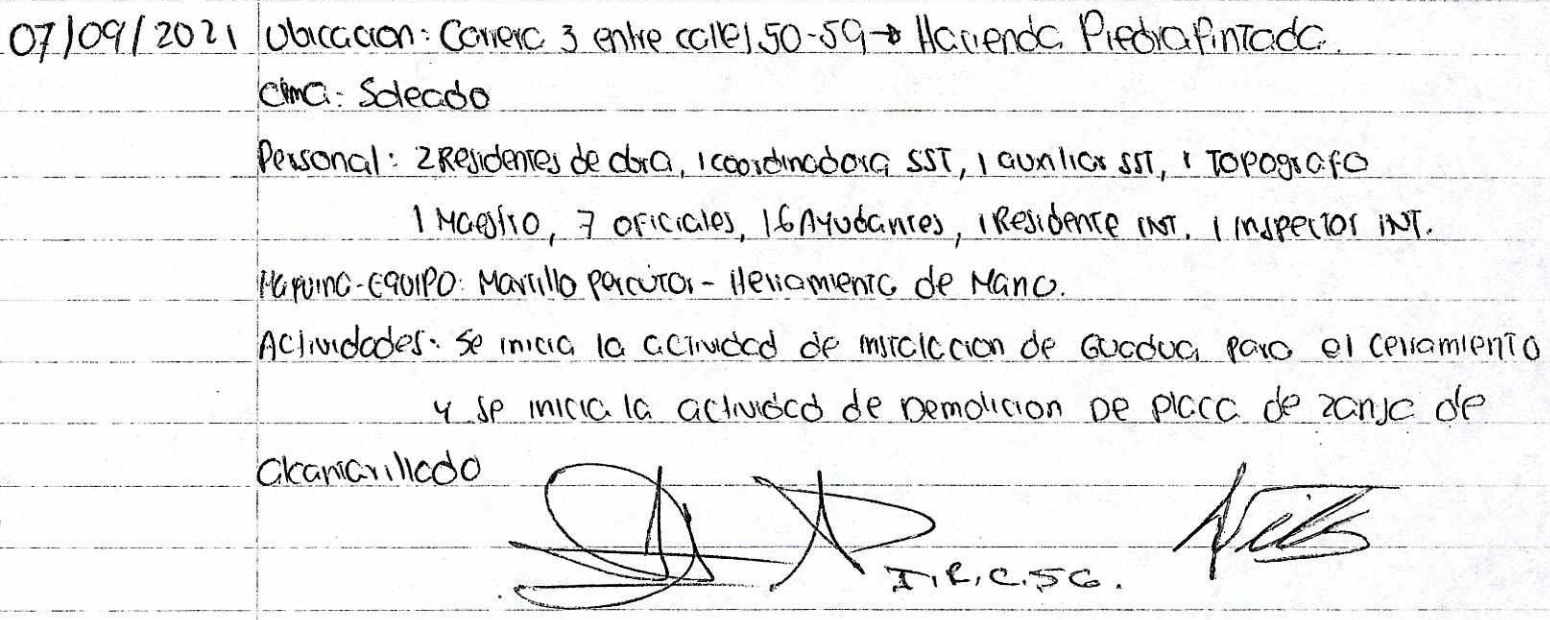 07/09/2021 Ubicacion: Carrera 3 entre calle 50-59 → Hacienda Piedrapintada.
Clima: Soleado
Personal: 2 Residentes de obra, 1 coordinadora SST, 1 auxiliar SST, 1 Topografo
1 Maestro, 7 oficiales, 16 Ayudantes, 1 Residente INT. 1 Inspector INT.
Maquina-Equipo: Martillo percutor - Herramienta de Mano.
Actividades: Se inicia la actividad de instalacion de Guadua para el cerramiento
y se inicia la actividad de Demolicion De placa de zanja de
alcantarillado